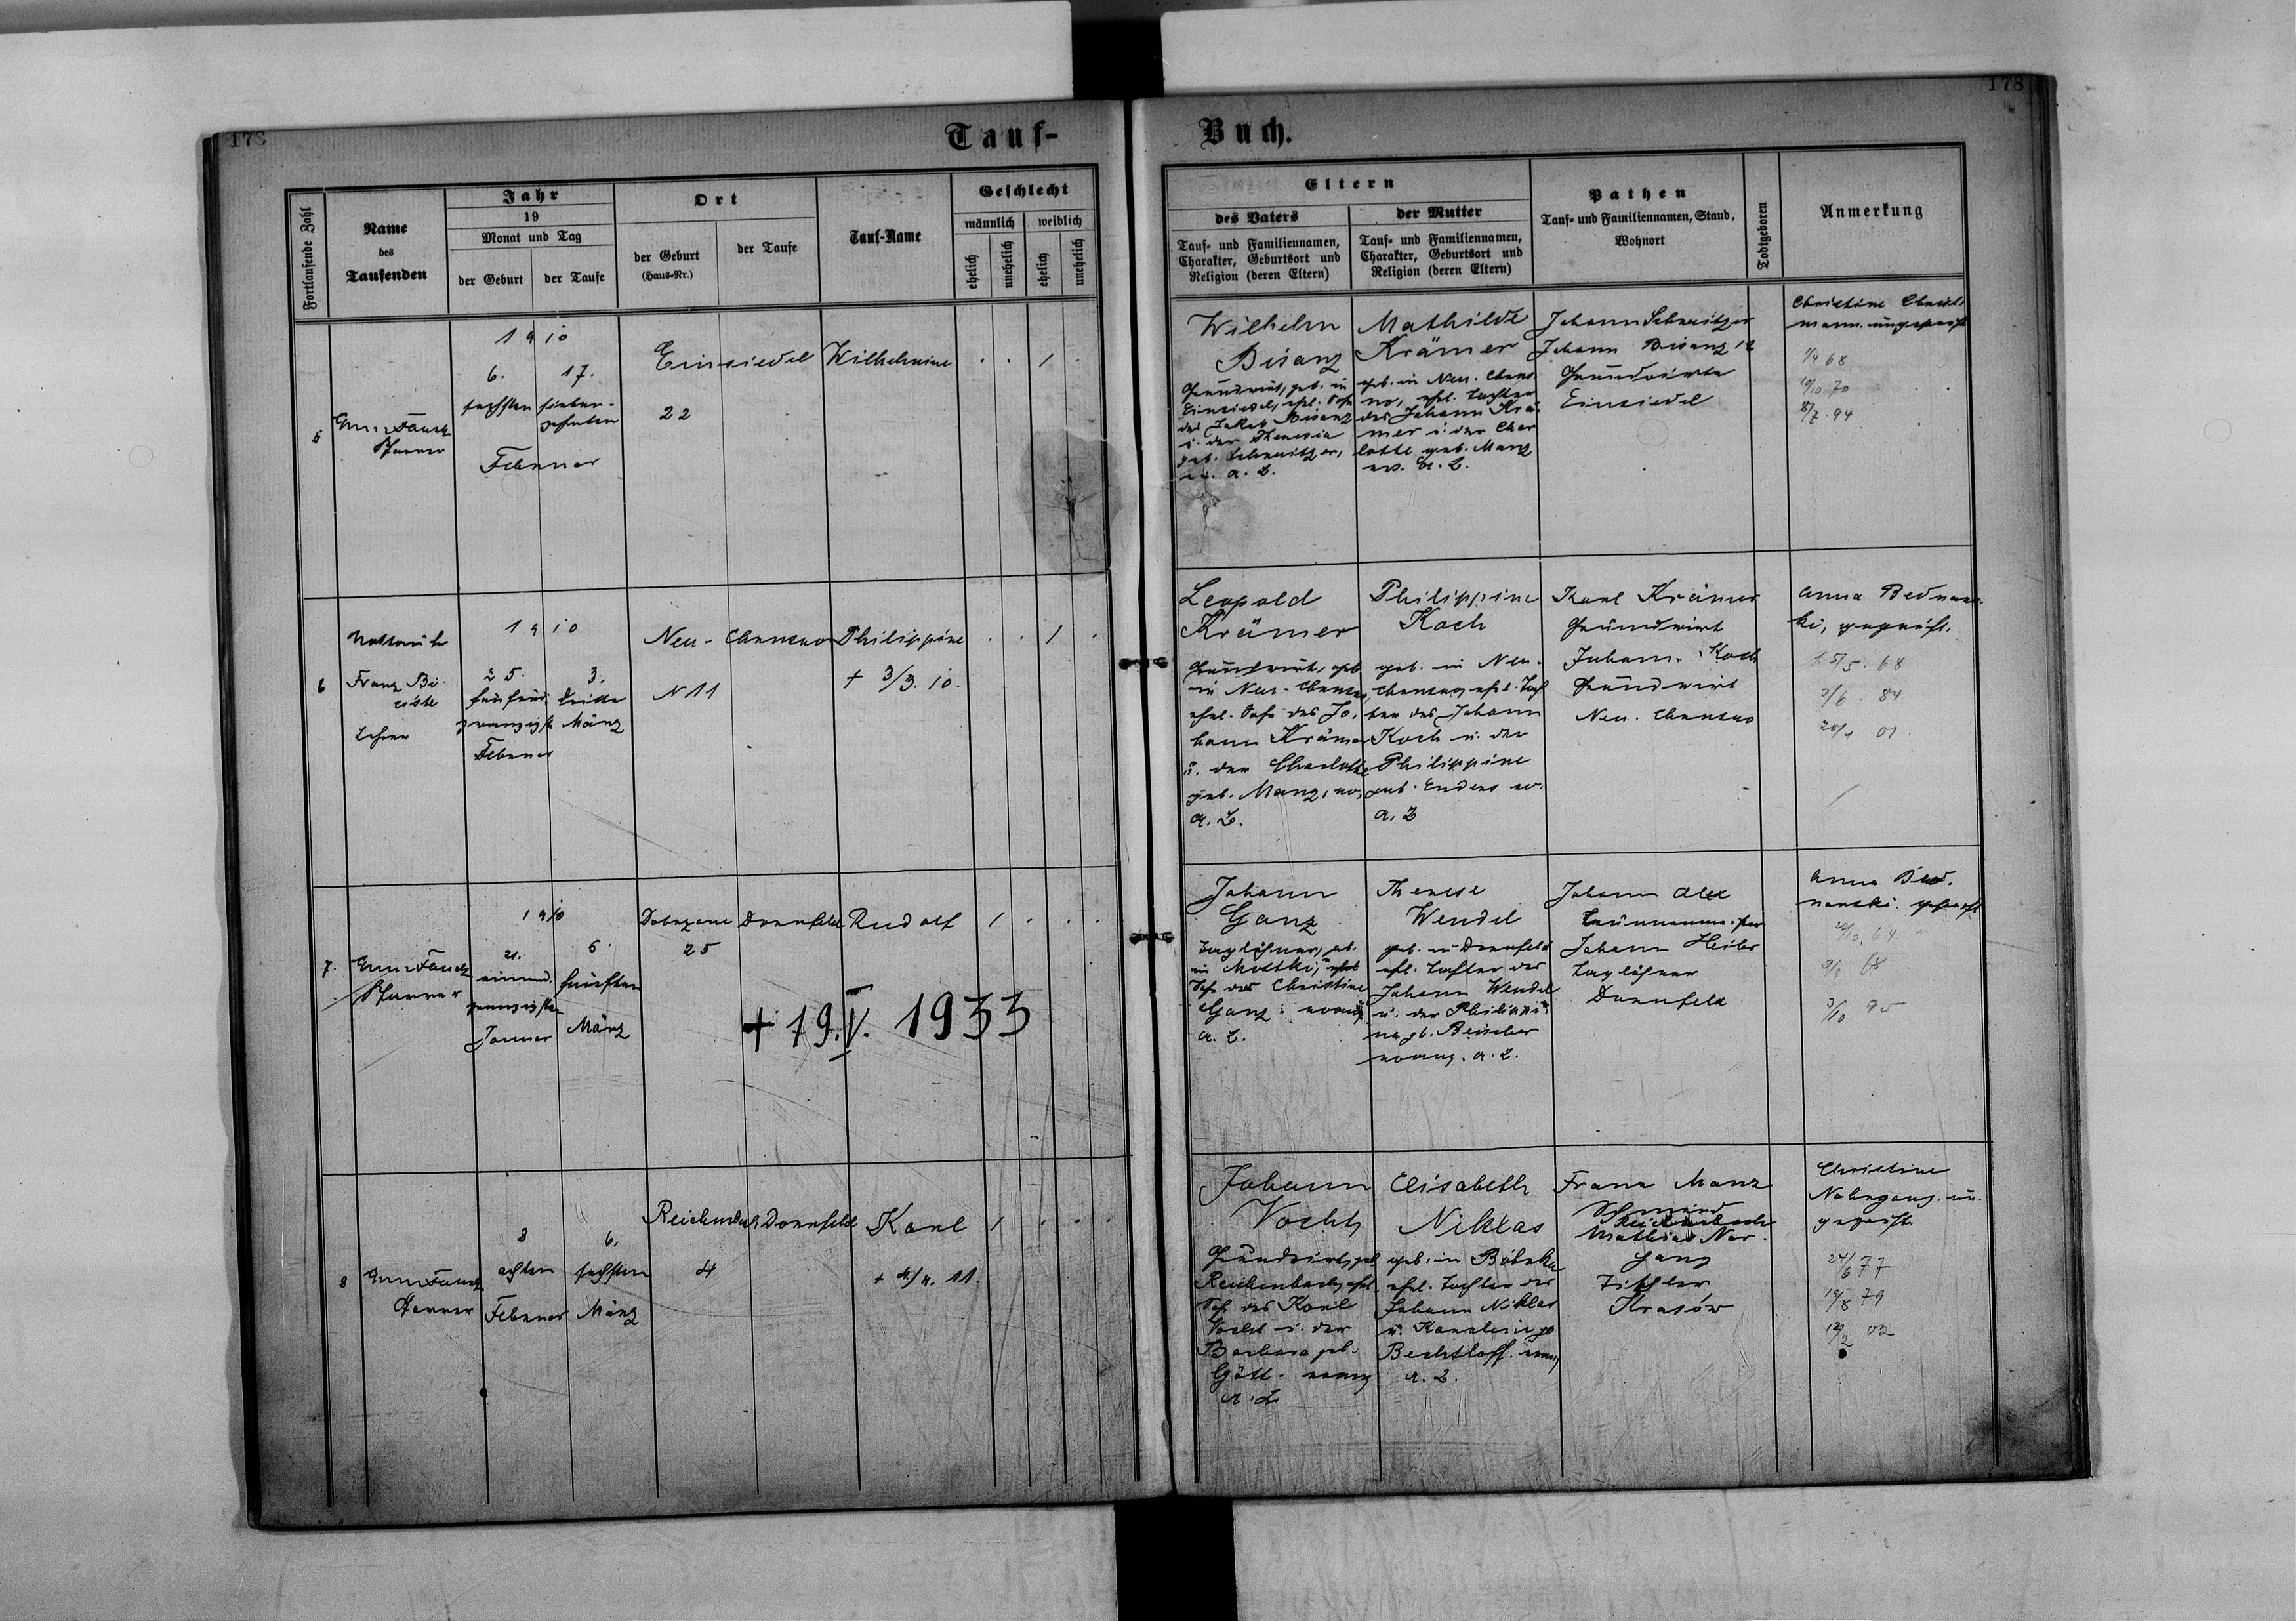 178
178
Tauf-
Buch.
Fortlaufende Zahl
Name
des
Taufenden
Jahr
19
Monat und Tag
der Geburt
der Taufe
Ort
der Geburt
(Haus-Nr.)
der Taufe
Tauf-Name
Geschlecht
männlich
weiblich
ehelich
unehelich
ehelich
unehelich
Eltern
des Vaters
Tauf- und Familiennamen,
Charakter, Geburtsort und
Religion (deren Eltern)
der Mutter
Tauf- und Familiennamen,
Charakter, Geburtsort und
Religion (deren Eltern)
Pathen
Tauf- und Familiennamen, Stand,
Wohnort
Todtgeboren
Anmerkung
5
Pfarrer
1910
6.
sechsten
17.
sieben-
zehnten
Februar
Einsiedel
22
Wilhelmine
1
Wilhelm
Bisanz
Grundwirt, geb. in
Einsiedel, ehl. Sohn
des Jakob Bisanz
u. der Theresia
geb. Schweitzer,
ev. A. B.
Mathilde
Krämer
geb. in Neu-Chrus-
no, ehl. Tochter
des Johann Krä-
mer u. der Char
lotte geb. Manz
ev. A. B.
Johann Schweitzer
Johann Bisanz 12
Grundwirte
Einsiedel
Christine
1/4 68
10/10 70
8/7. 94
6
Nottaufe
Franz Bi-
Lehrer
1910
25.
fünfund
zwanzigst
Februar
3.
dritte
März
Neu-Chrusno
N 11
Philippine
+ 3/3. 10.
1
Leopold
Krämer
Grundwirt, geb
in Neu-Chrusno,
ehel. Sohn des Jo-
hann Krämer
u. der Charlotte
geb. Manz, ev.
A. B.
Philippine
Koch
geb. in Neu-
Chrusno, ehel. Toch
ter des Johann
Koch u. der
Philippine
geb. Enders ev.
A. B
Karl Krämer
Grundwirt
Johann Koch
Grundwirt
Neu-Chrusno
Anna Bednars-
ki, geprüft.
15/5. 68
3/6. 84
20/1 01.
7.
Pfarrer
1910
21.
einund-
zwanzigsten
Jänner
5.
fünften
März
25
Dornfeld
Rudolf
1
+ 19.V. 1933
Johann
Ganz
Taglöhner, geb.
in Mostki, unehl
Sohn der Christine
Ganz evang
A. B.
Therese
Wendel
geb. in Dornfeld
ehl. Tochter des
Johann Wendel
u. der Philippi-
ne gb. Beischer
evang. A. B.
Johann Alex
Brunnenmeister
Johann Heiler
Taglöhner
Dornfeld
Anna Bed-
narski. geprüft
3/10 95
8
Pfarrer
8
achten
Februar
6.
sechsten
März
Reichenbach
4
Dornfeld
Karl
+ 4/4. 11.
1
Johann
Vocht
Grundwirt, geb
Reichenbach, ehel
Sohn des Karl
Vocht u. der
Barbara geb.
Gött. evang
A. B.
Elisabeth
Niklas
geb. in Bóbrka
ehl. Tochter des
Johann Niklas
u. Karoline gb
Bechtloff. evang
A. B.
Franz Manz
Schmied
Reichenbach
Mathias Nar-
gang
Tischler
Krasów
Christine
Nahrgang. un-
geprüft.
24/6 77
19/8 79
12/2 02